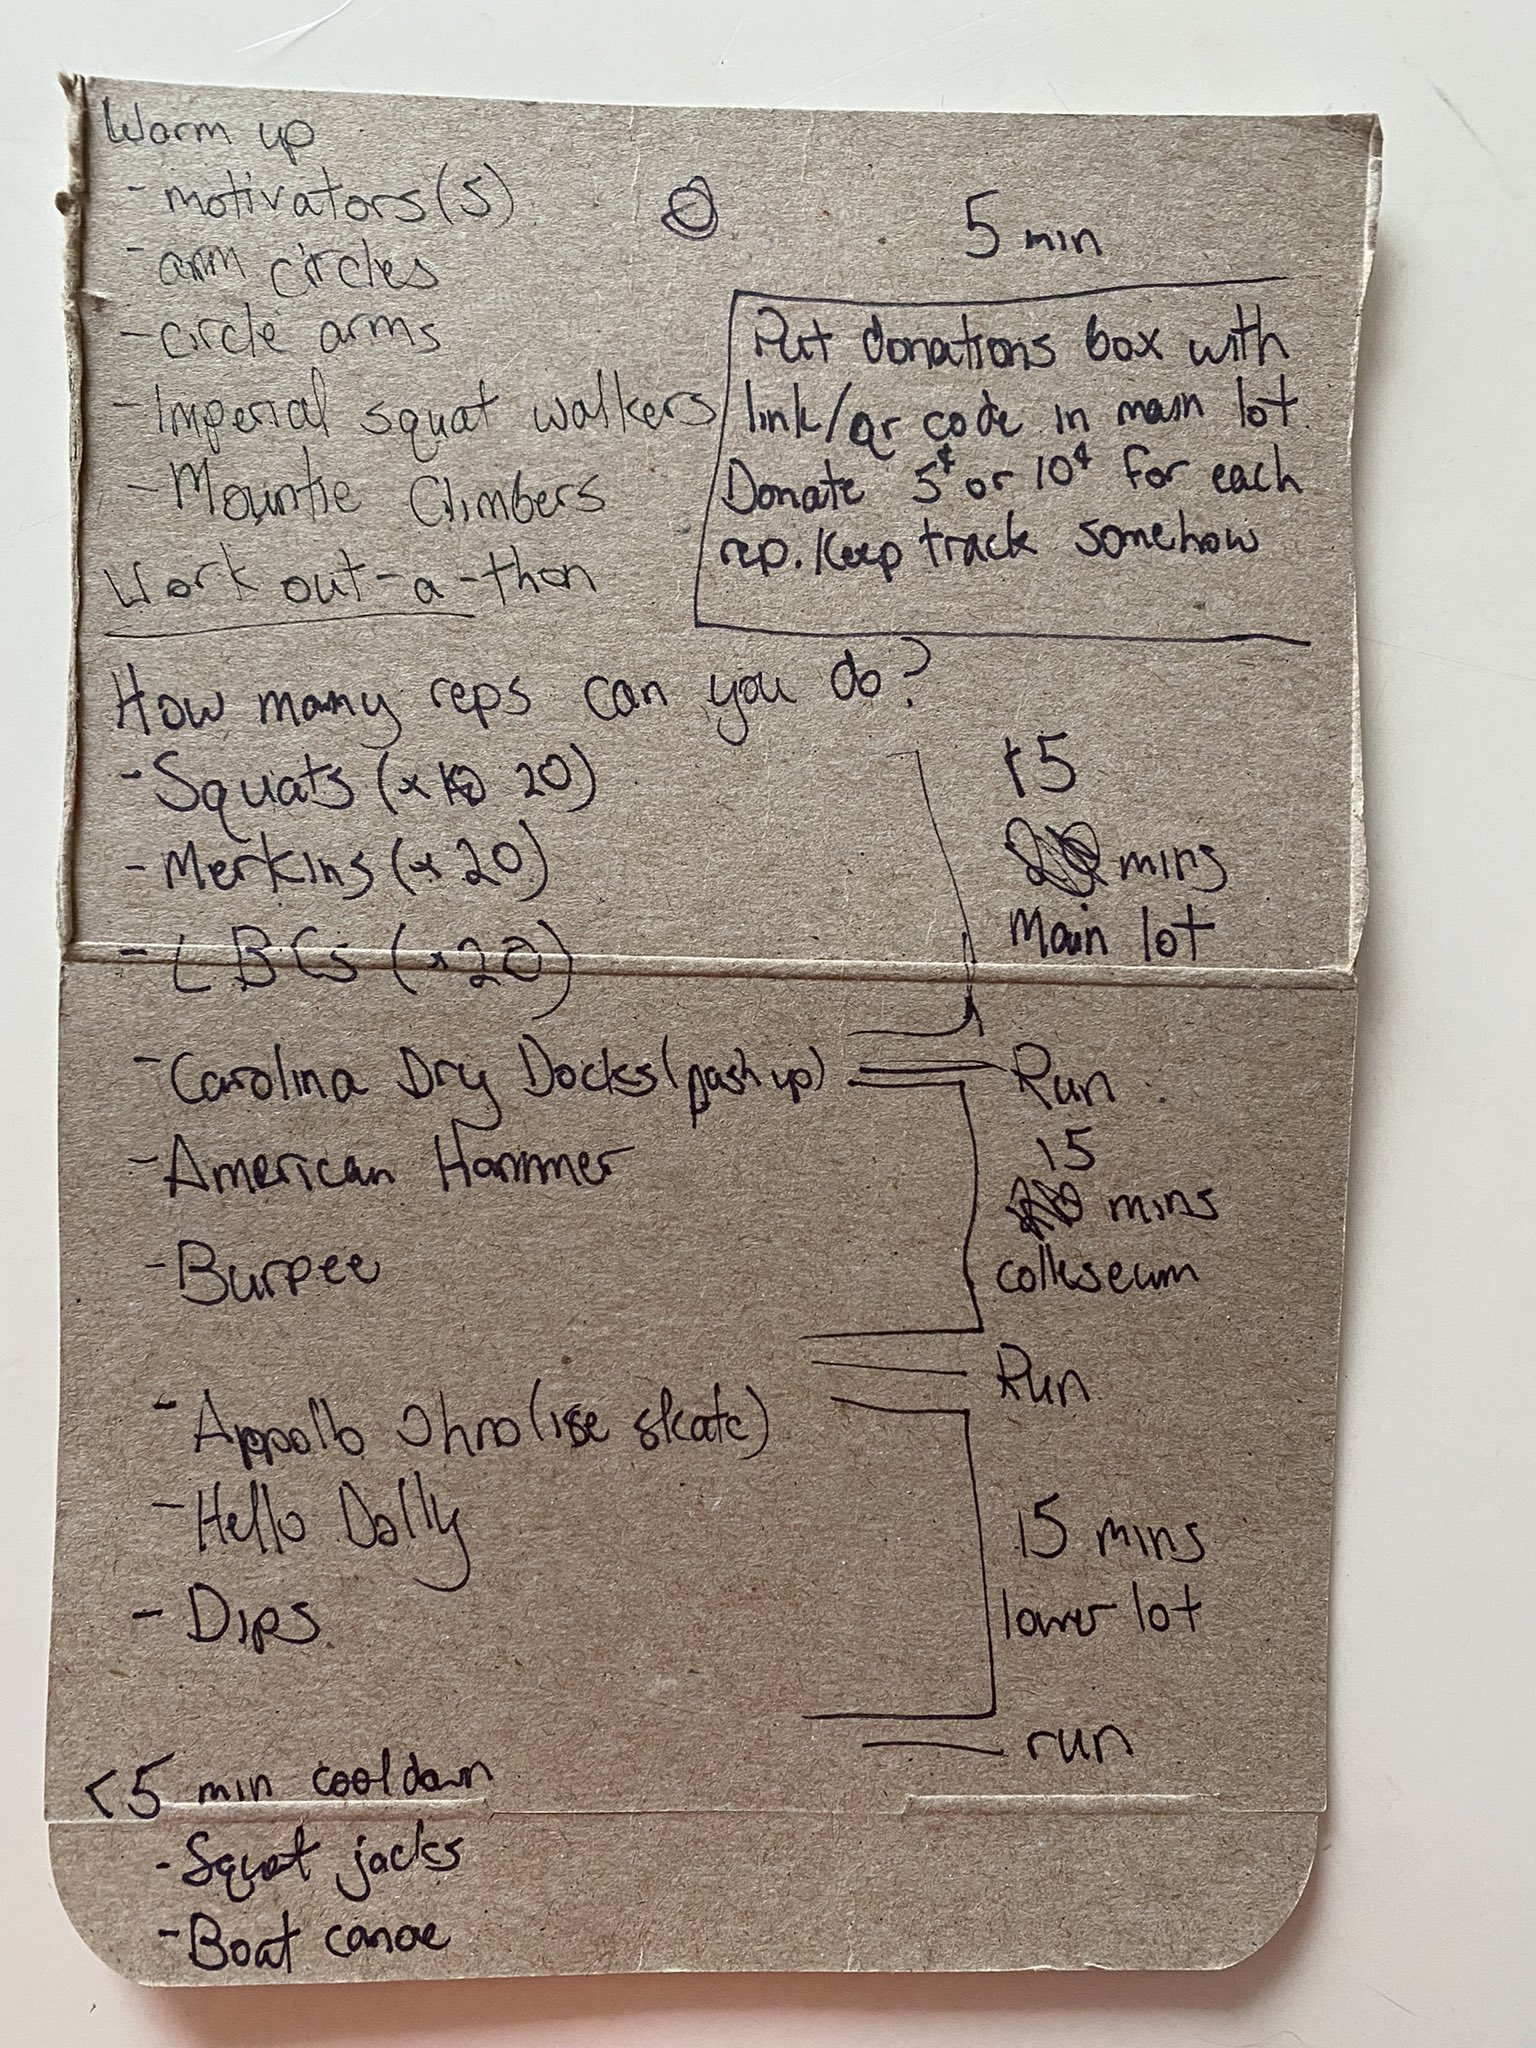 Warm up
- motivators (5)
- arm circles
- circle arms
- Imperial squat walkers
- Mountie Climbers
5 min
Put donations box with
link/qr code in main lot.
Donate 5¢ or 10¢ for each
rep. Keep track somehow
Work out-a-thon
How many reps can you do?
- Squats (x 20)
- Merkins (x 20)
- LBCs (x 20)
15
mins
Main lot
- Carolina Dry Docks (push up)
Run
- American Hammer
- Burpee
15
mins
colliseum
Run
- Appollo Ohno (ise skate)
- Hello Dolly
- Dips
15 mins
lower lot
run
<5 min cooldown
- Squat jacks
- Boat canoe